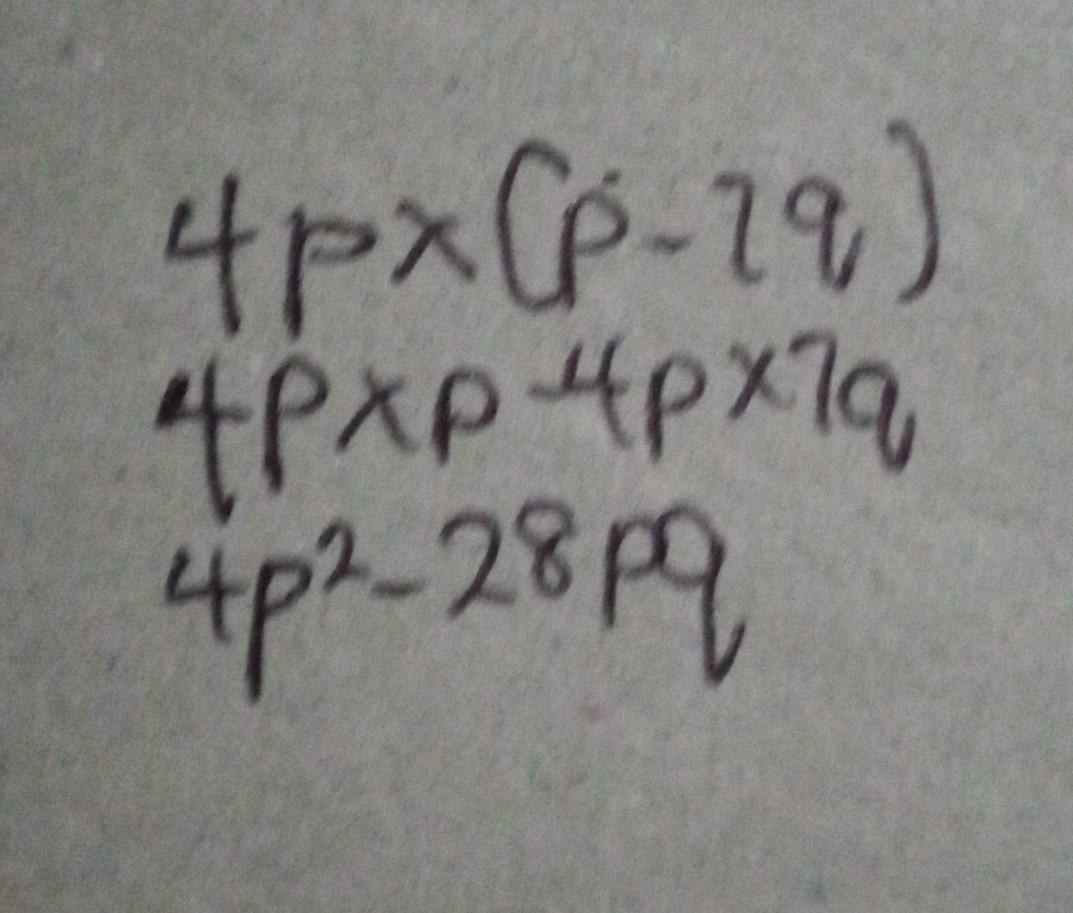 4p×(p-7q)
4p×p-4p×7q
4p²-28pq